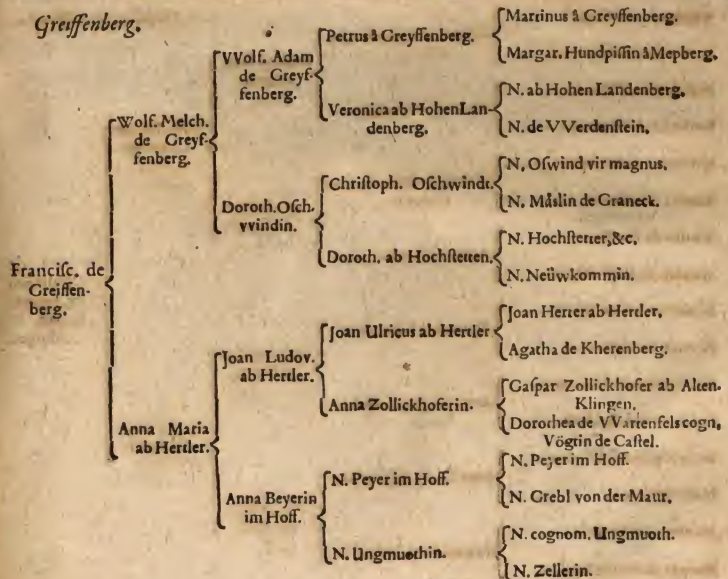 Greiffenberg.
Francisc. de
Greiffen-
berg.
Wolf. Melch.
de Greyf-
fenberg.
Anna Maria
ab Hertler.
VVolf. Adam
de Greyf-
fenberg.
Doroth. Osch-
vvindin.
Joan Ludov.
ab Hertler.
Anna Beyerin
im Hoff.
Petrus â Greyffenberg.
Veronica ab Hohen Lan-
denberg.
Christoph. Oschwindt.
Doroth. ab Hochstetten.
Joan Ulricus ab Hertler
Anna Zollickhoferin.
N. Peyer im Hoff.
N. Ungmuothin.
Martinus â Greyffenberg.
Margar. Hundpissin â Mepberg.
N. ab Hohen Landenberg.
N. de VVerdenstein.
N. Oswind vir magnus.
N. Måslin de Graneck.
N. Hochstetter, &c.
N. Neüwkommin.
Joan Herter ab Hertler.
Agatha de Kherenberg.
Gaspar Zollickhofer ab Alten-
Klingen.
Dorothea de VVartenfels cogn.
Vögtin de Castel.
N. Peyer im Hoff.
N. Grebl von der Maur.
N. cognom. Ungmuoth.
N. Zellerin.